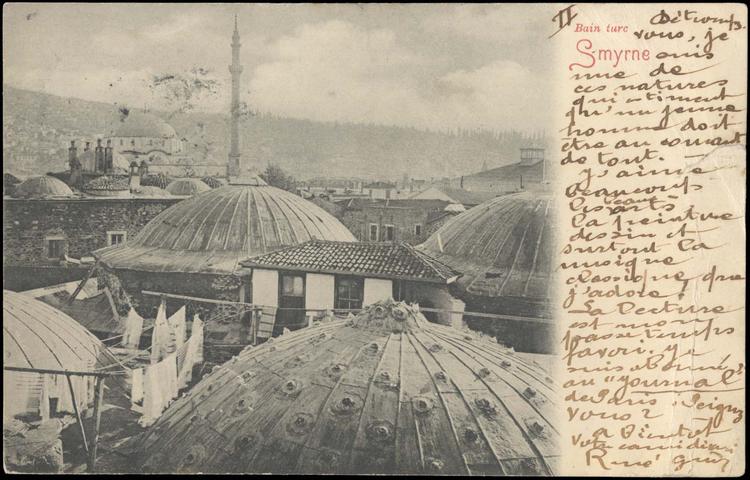 II
Bain turc
Smyrne
Détromp.
vous, je
suis
une de
ces natures
qui estiment
qu'un jeune
homme doit
être au courant
de tout.
J'aime
beaucoup
les beaux
arts
la peinture
dessin et
surtout la
musique
classique, que
j'adore.
La lecture
est mon
passe temps
favori. Je
suis abonné
au "Journal"
de Paris.
vous?
a bientôt
votre
René